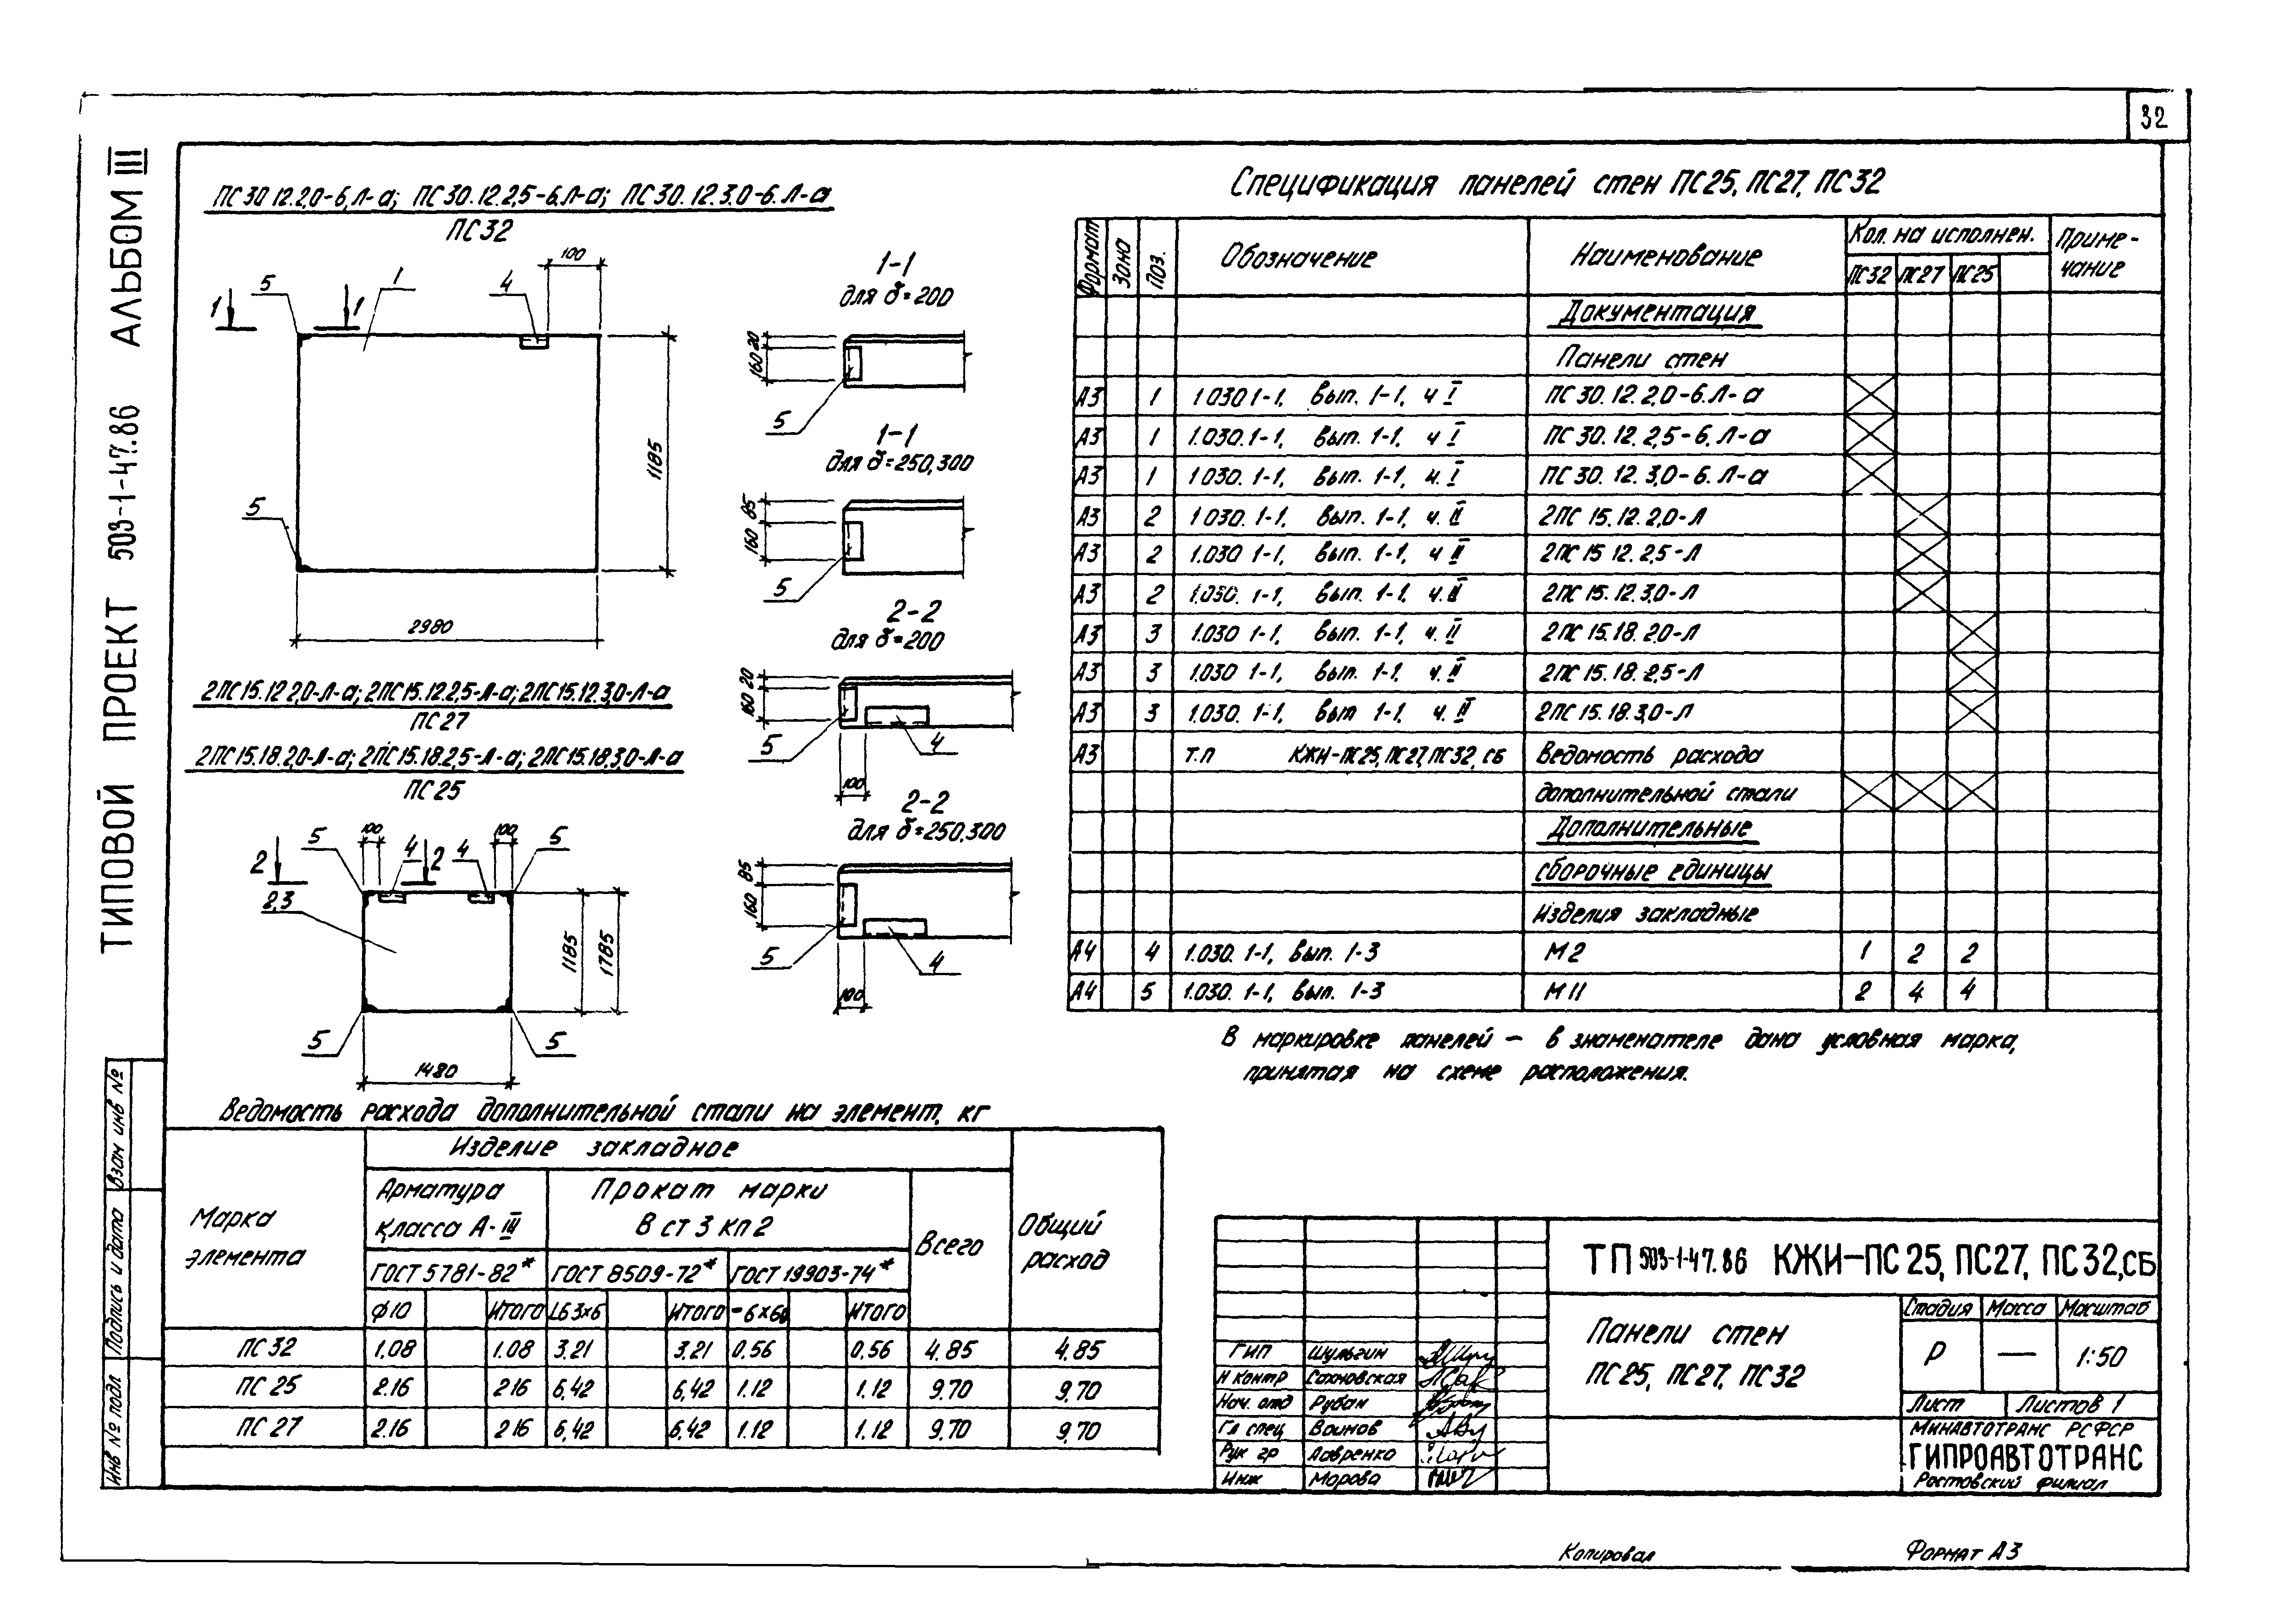 32
ТИПОВОЙ ПРОЕКТ 503-1-47.86 АЛЬБОМ III
ПС30 12.2,0-6,Л-а; ПС30.12.2,5-6.Л-а; ПС30.12.3,0-6.Л-а
ПС32
5
1
4
100
1
1
5
1185
2980
2ПС15.12 2,0-Л-а; 2ПС15.12.2,5-Л-а; 2ПС15.12.3,0-Л-а
ПС27
2ПС15.18.2,0-Л-а; 2ПС15.18.2,5-Л-а; 2ПС15.18.3,0-Л-а
ПС25
5
100
4
2
4
100
5
2
2,3
1185
1785
5
5
1480
1-1
для δ=200
20
160
5
1-1
для δ=250,300
85
160
5
2-2
для δ=200
20
160
5
4
100
2-2
для δ=250,300
85
160
5
4
100
Спецификация панелей стен ПС25, ПС27, ПС32
Формат Зона Поз. Обозначение Наименование Кол. на исполнен. Приме-
чание
ПС32 ПС27 ПС25
Документация
Панели стен
А3 1 1 030 1-1, вып. 1-1, ч I ПС 30. 12. 2,0-6.Л-а
А3 1 1.030.1-1, вып. 1-1, ч I ПС 30. 12. 2,5-6. Л-а
А3 1 1 030. 1-1, вып. 1-1, ч. I ПС 30. 12. 3,0-6. Л-а
А3 2 1 030. 1-1, вып. 1-1, ч. II 2ПС 15. 12. 2,0-Л
А3 2 1.030 1-1, вып. 1-1, ч II 2ПС 15 12. 2,5-Л
А3 2 1.030. 1-1, вып. 1-1, ч. II 2ПС 15. 12. 3,0-Л
А3 3 1.030 1-1, вып. 1-1, ч. II 2ПС 15.18. 2,0-Л
А3 3 1.030 1-1, вып. 1-1, ч. II 2ПС 15.18.2,5-Л
А3 3 1.030. 1-1, вып 1-1, ч. II 2ПС 15.18.3,0-Л
А3 Т.П КЖИ-ПС25, ПС27, ПС32, СБ Ведомость расхода
дополнительной стали
Дополнительные
сборочные единицы
Изделия закладные
А4 4 1.030. 1-1, вып. 1-3 М 2 1 2 2
А4 5 1.030. 1-1, вып. 1-3 М 11 2 4 4
В маркировке панелей – в знаменателе дана условная марка,
принятая на схеме расположения.
Ведомость расхода дополнительной стали на элемент, кг
Марка
элемента
Изделие закладное
Общий
расход
Арматура
класса А-III
Прокат марки
В ст 3 кп 2
Всего
ГОСТ 5781-82* ГОСТ 8509-72* ГОСТ 19903-74*
φ10 Итого L63×6 Итого -6×60 Итого
ПС 32 1.08 1.08 3.21 3.21 0.56 0.56 4.85 4.85
ПС 25 2.16 2 16 6.42 6.42 1.12 1.12 9.70 9.70
ПС 27 2.16 2 16 6.42 6.42 1.12 1.12 9.70 9.70
Взам инв №
Подпись и дата
Инв № подл
ТП 503-1-47.86 КЖИ-ПС25, ПС27, ПС32, СБ
Панели стен
ПС25, ПС27, ПС32
Стадия Масса Масштаб
Р — 1:50
Лист Листов 1
Минавтотранс РСФСР
ГИПРОАВТОТРАНС
Ростовский филиал
ГИП Шульгин
Н контр Сахновская
Нач. отд Рубан
Гл спец Воинов
Рук гр Лавренко
Инж Морова
Копировал
Формат А3